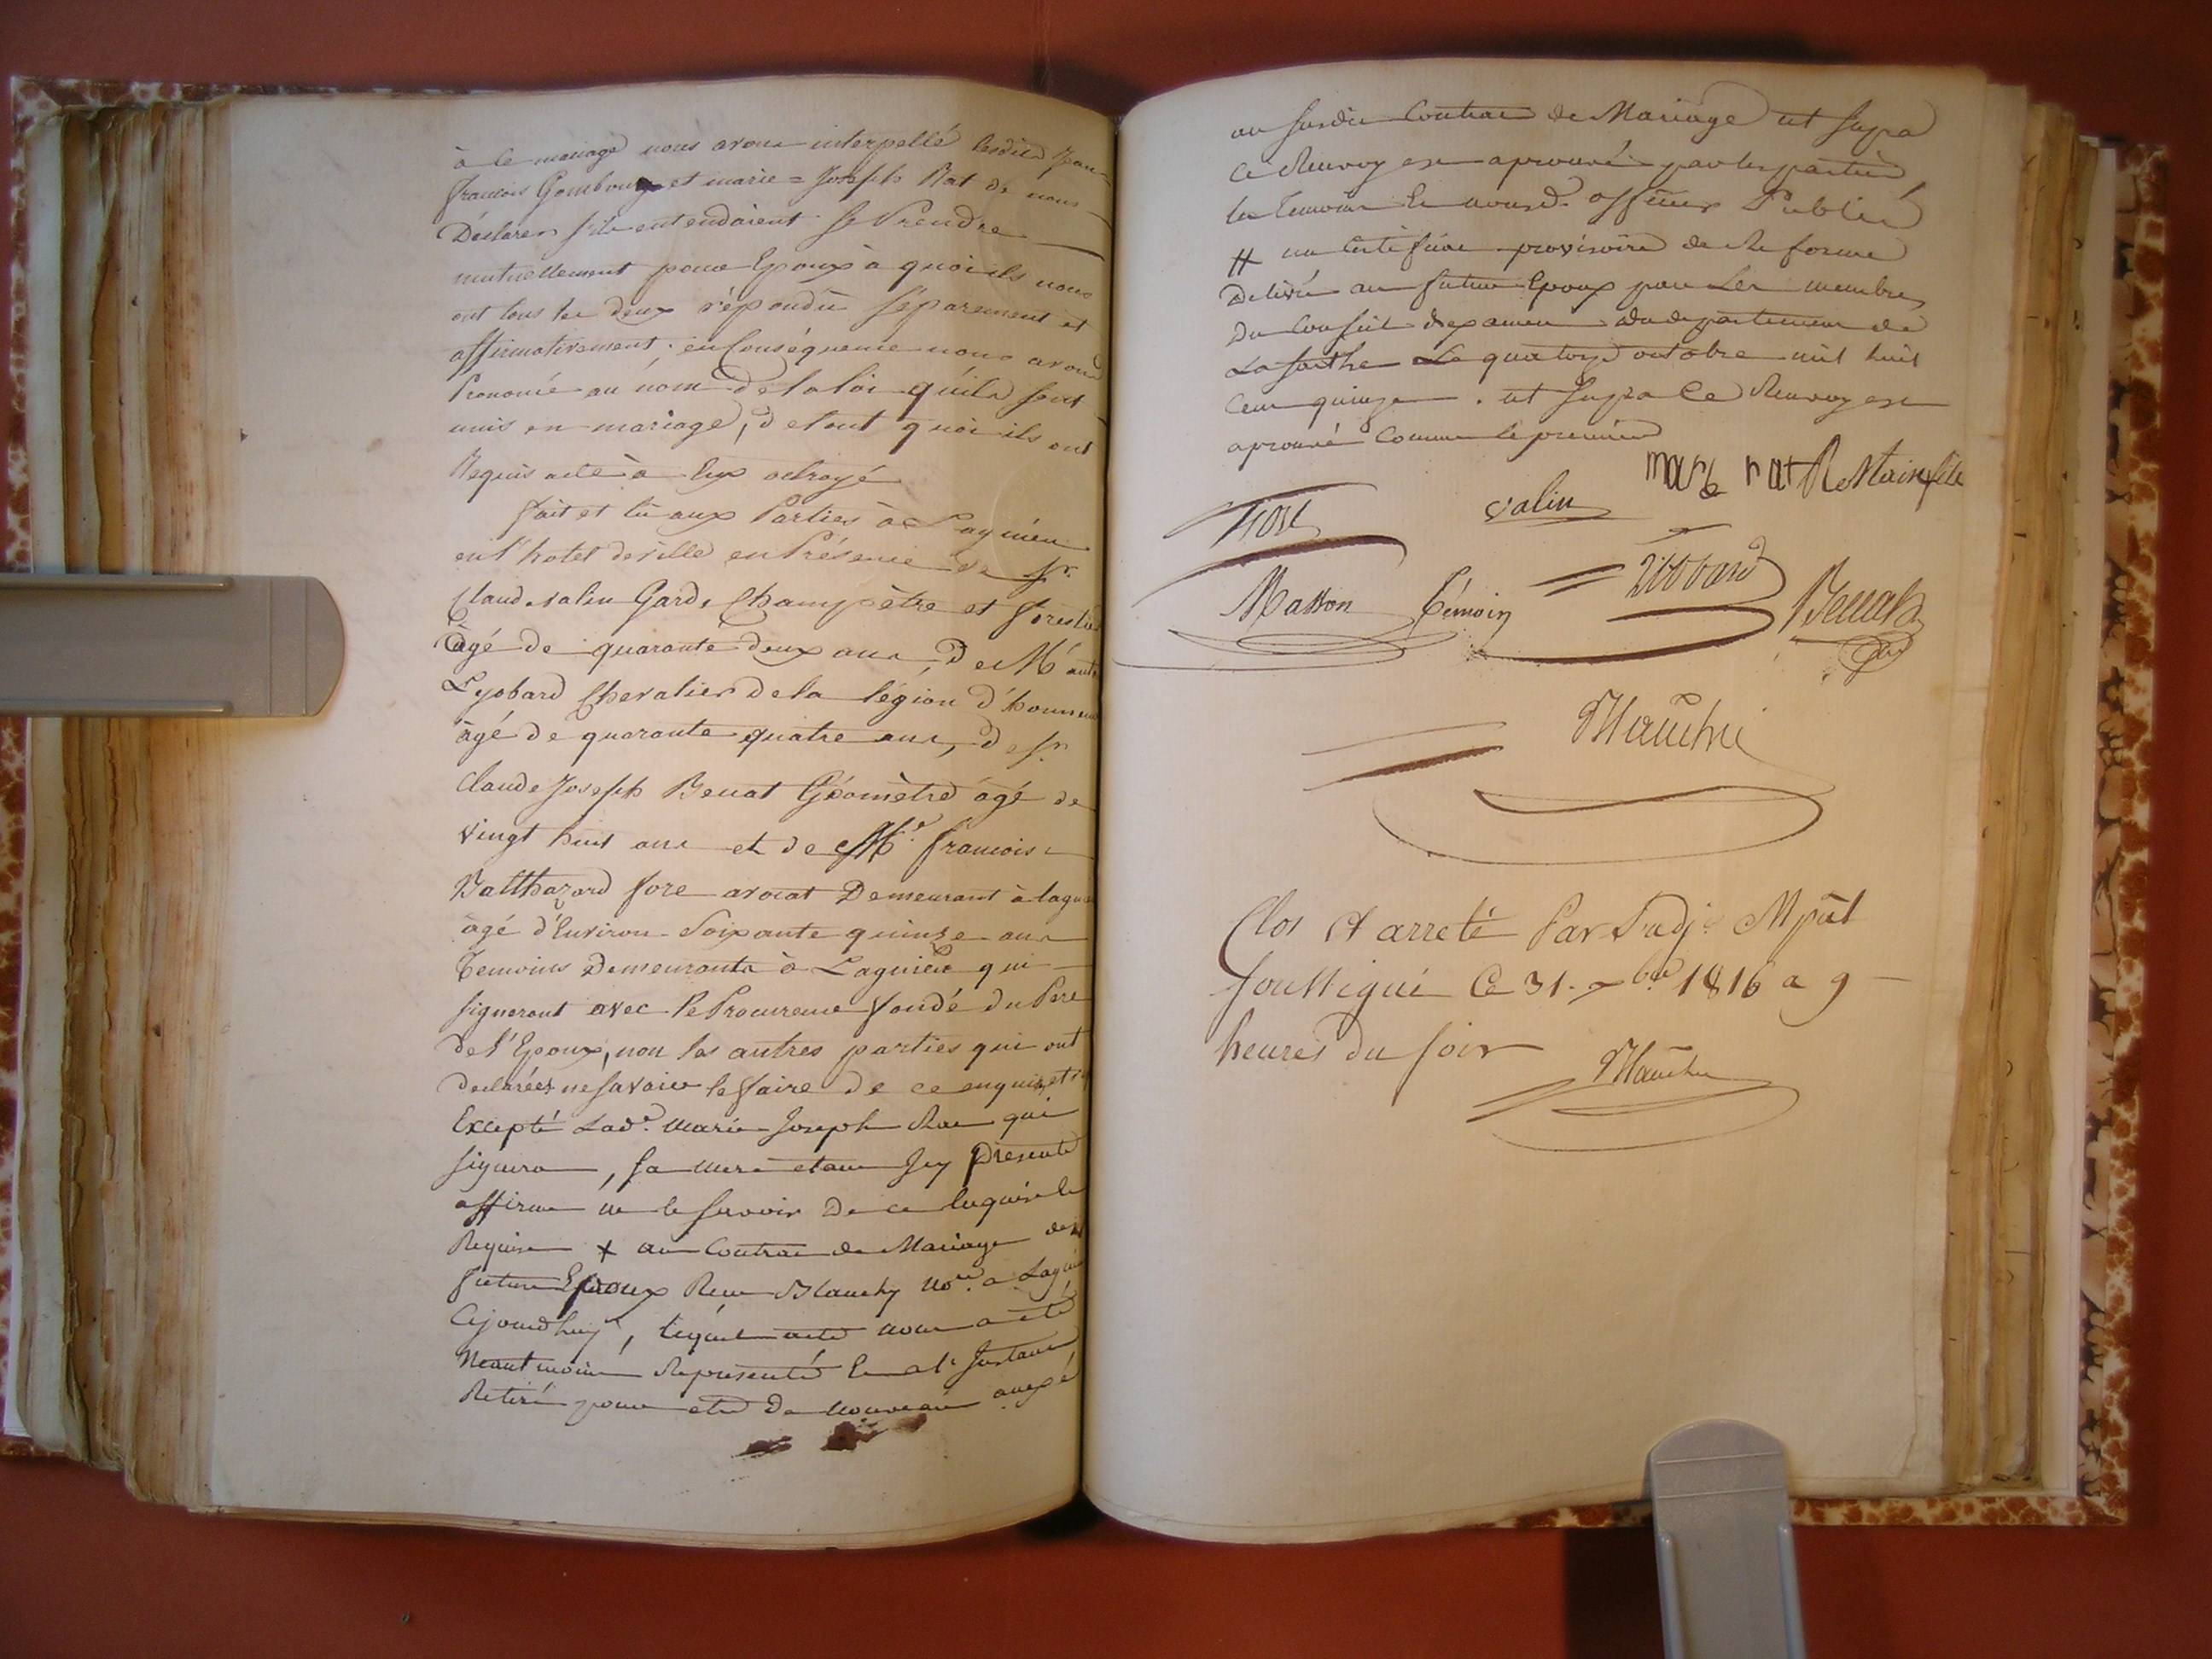 à le mariage nous avons interpellé lesdits Jean
françois Gombourg et marie = Joseph Rat de nous
Déclarer s'ils entendaient se Prendre
mutuellement pour Epoux à quoi ils nous
ont tous les deux répondu séparement et
affirmativement ; en Conséquence nous avons
Prononcé au nom de la loi qu'ils sont
unis en mariage, de tout quoi ils ont
Requis acte à Eux octroyé
fait et lû aux Parties à Lagnieu
en l'hotel de ville en Présence de Sr.
Claude valin Garde Champêtre et forestier
âgé de quarante deux ans, De Mr. ant.
Lyobard Chevalier de la légion d'honneur
âgé de quarante quatre ans, de Sr.
Claude Joseph Benat Géomètre âgé de
vingt huit ans et de Mr. françois
Balthazard fore avocat Demeurant à lagnieu
âgé d'Environ Soixante quinze ans
Temoins Demeurants à Lagnieu qui
signeront avec le Procureur fondé du Pere
de l'Epoux, non les autres parties qui ont
declarées ne savoir le faire de ce enquis et
Excepté Lade. marie Joseph Rat qui
signera, sa mere etant Icy présente
affirme ne le savoir de ce Enquise et
Requise + au Contrat de Mariage des
futurs Epoux Recu Blanchy nore. a Lagnieu
Cejourdhuy, lequel acte nous a eté
Neantmoins Representé Et a l'Instant
Retiré pour etre De nouveau anexé
au susdit Contrat de Mariage ut supra
Ce Renvoy est aprouvé par les parties
les Temoins Et nousd. officier Public
# un Certificat provisoire de Reforme
Delivré au futur Epoux par Les membres
Du Conseil d'examen du departement de
La sarthe Le quatorze octobre mil huit
Cent quinze . ut supra Ce Renvoy est
aprouvé Comme le premier
marie rat
valin
Masson Témoin
Benat
Clos et arreté Par l'adj. Mpal
soussigné Ce 31. xbre 1816 a 9
heures du soir